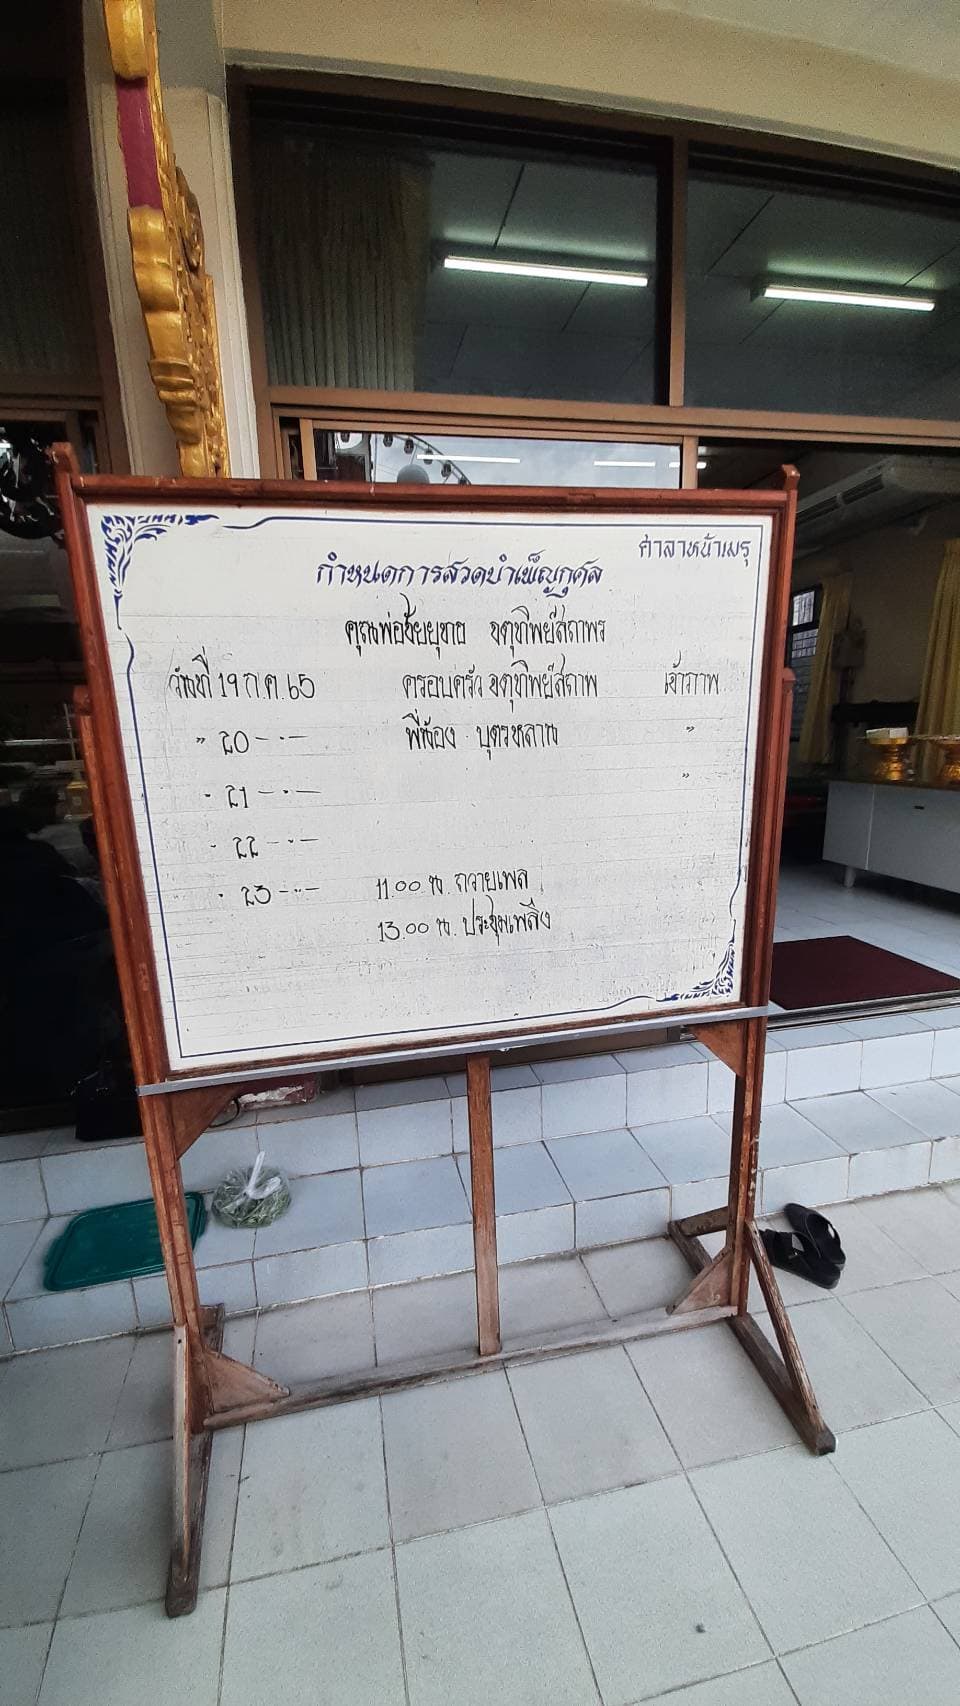 ศาลาหน้าเมรุ
กำหนดการสวดบำเพ็ญกุศล
คุณพ่อชัยยุทธ จตุทิพย์สถาพร
วันที่ 19 ก.ค 65 ครอบครัว จตุทิพย์สถาพ เจ้าภาพ
" 20 -·- พี่น้อง · บุตรหลาน "
· 21 -·- "
· 22 -·-
· 23 -·- 11.00 น. ถวายเพล
13.00 น. ประชุมเพลิง